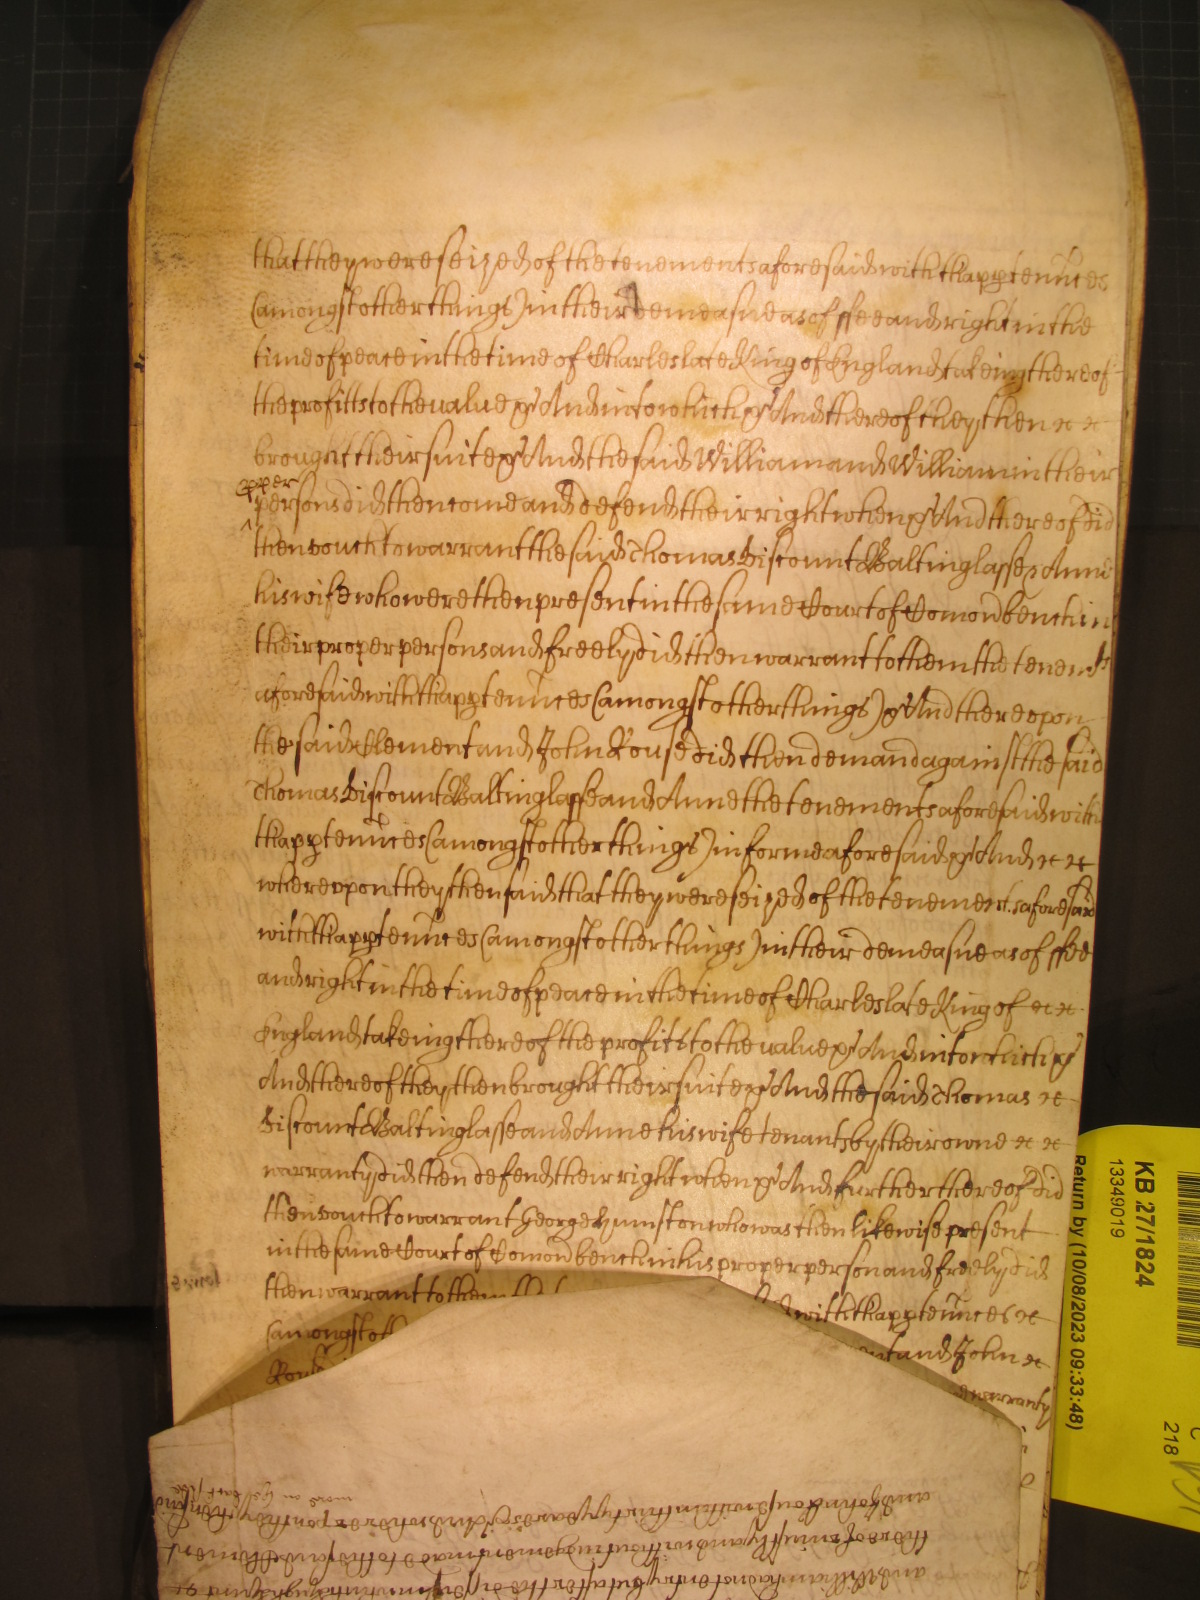 that they were seized of the tenements aforesaid with thapptennces
(amongst other things) in their demeasne as of ffee and right in the
time of peace in the time of Charles late King of England takeing thereof
the profitts to the value &c And into which &c And thereof they then &c &c
brought their suite &c And the said William and William in their
pper
persons did then come and defend their right when &c And thereof did
then vouch to warrant the said Thomas Viscount Baltinglasse & Anne
his wife who were then present in the same Court of Comon bench in
their proper persons and freely did then warrant to them the tenemts
aforesaid with thapptennces (amongst other things) &c And thereopon
the said Clement and John Rouse did then demand against the said
Thomas Viscount Baltinglasse and Anne the tenements aforesaid with
thapptennces (amongst other things) in forme aforesaid &c And &c &c
whereopon they then said that they were seized of the tenements aforesaid
with thapptennces (amongst other things) in their demeasne as of ffee
and right in the time of peace in the time of Charles late King of &c &c
England takeing thereof the profitts to the value &c And into which &c
And thereof they then brought their suite &c And the said Thomas &c
Viscount Baltinglasse and Anne his wife tenants by their owne &c &c
warranty did then defend their right when &c And further thereof did
then vouch to warrant George Humston who was then likewise present
in the same Court of Comon bench in his proper person and freely did
then warrant to them with thapptennces &c
(amongst oth and John &c
warranty
KB 27/1824
13349019
Return by (10/08/2023 09:33:48)
218
and John Rouse within thirty yeares &c And whereopon they then said
thereof iniustly and without iudgement made to the said Clement
and William had not entry but after the disseisin which Hugh Hunt &c